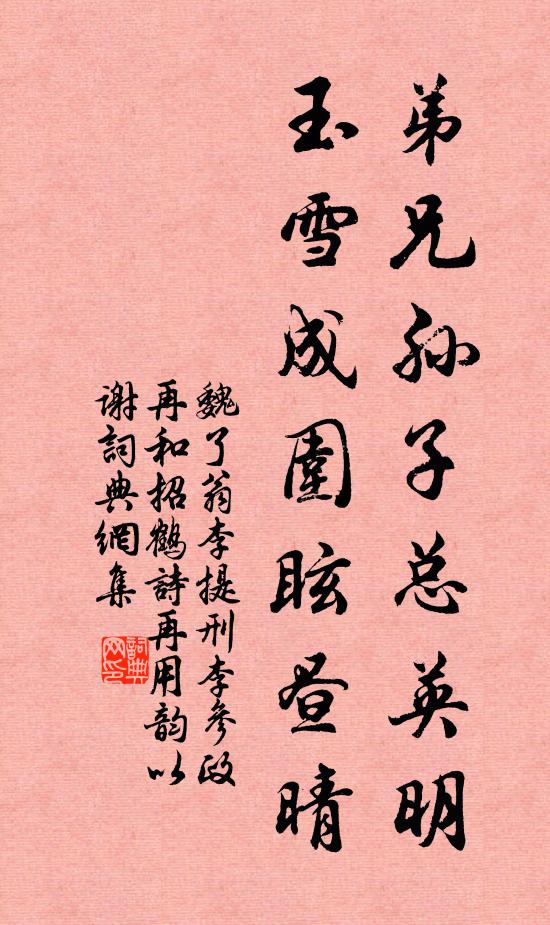 弟兄孙子总英明
玉雪成围眩昼晴
魏了翁李提刑李参政
再和招鹤诗再用韵以
谢词典网集
词典网印